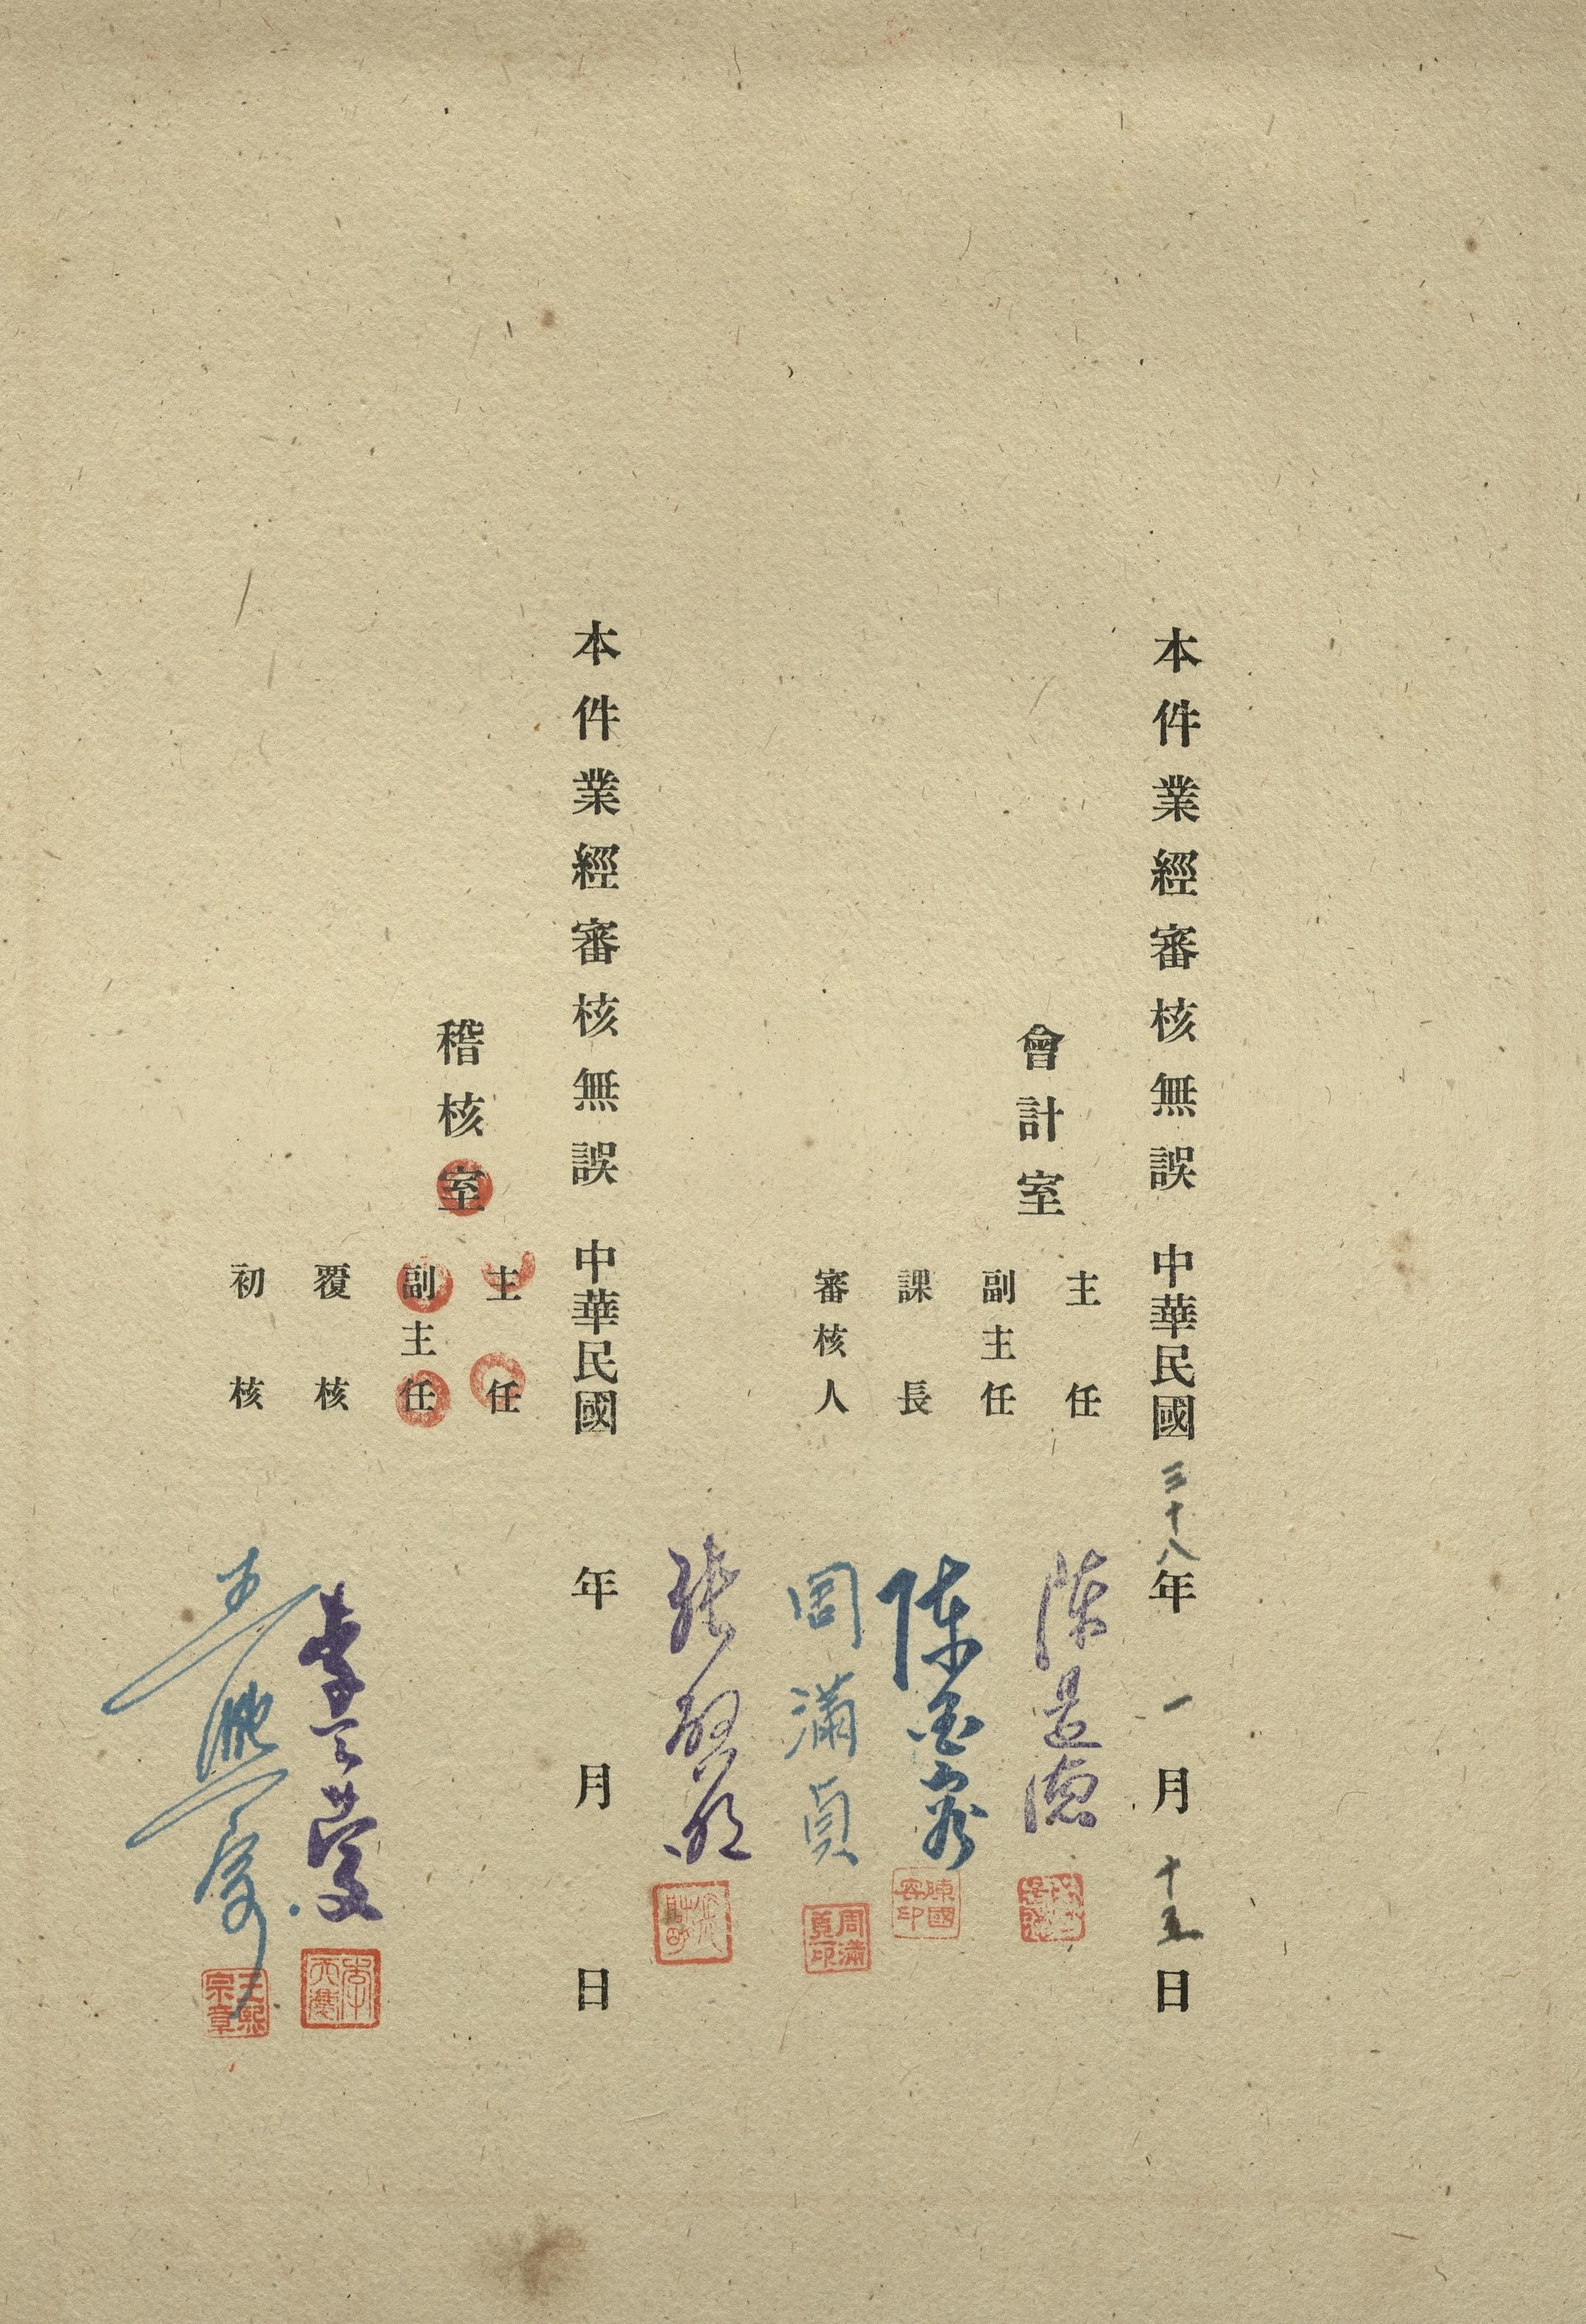 本件業經審核無誤 中華民國三十八年一月十五日
會計室
主任 陳
副主任
課長 陳國容
陳國容印
審核人 周滿貞
周滿貞印
張
本件業經審核無誤 中華民國 年 月 日
稽核室
主任
副主任
覆核 李天
李天
初核 王熙宗
王熙宗章